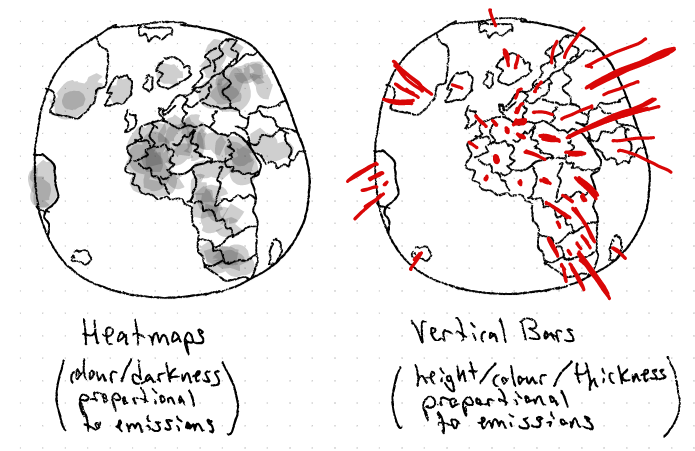 Heatmaps
(colour/darkness
proportional
to emissions)
Vertical Bars
(height/colour/thickness
proportional
to emissions)